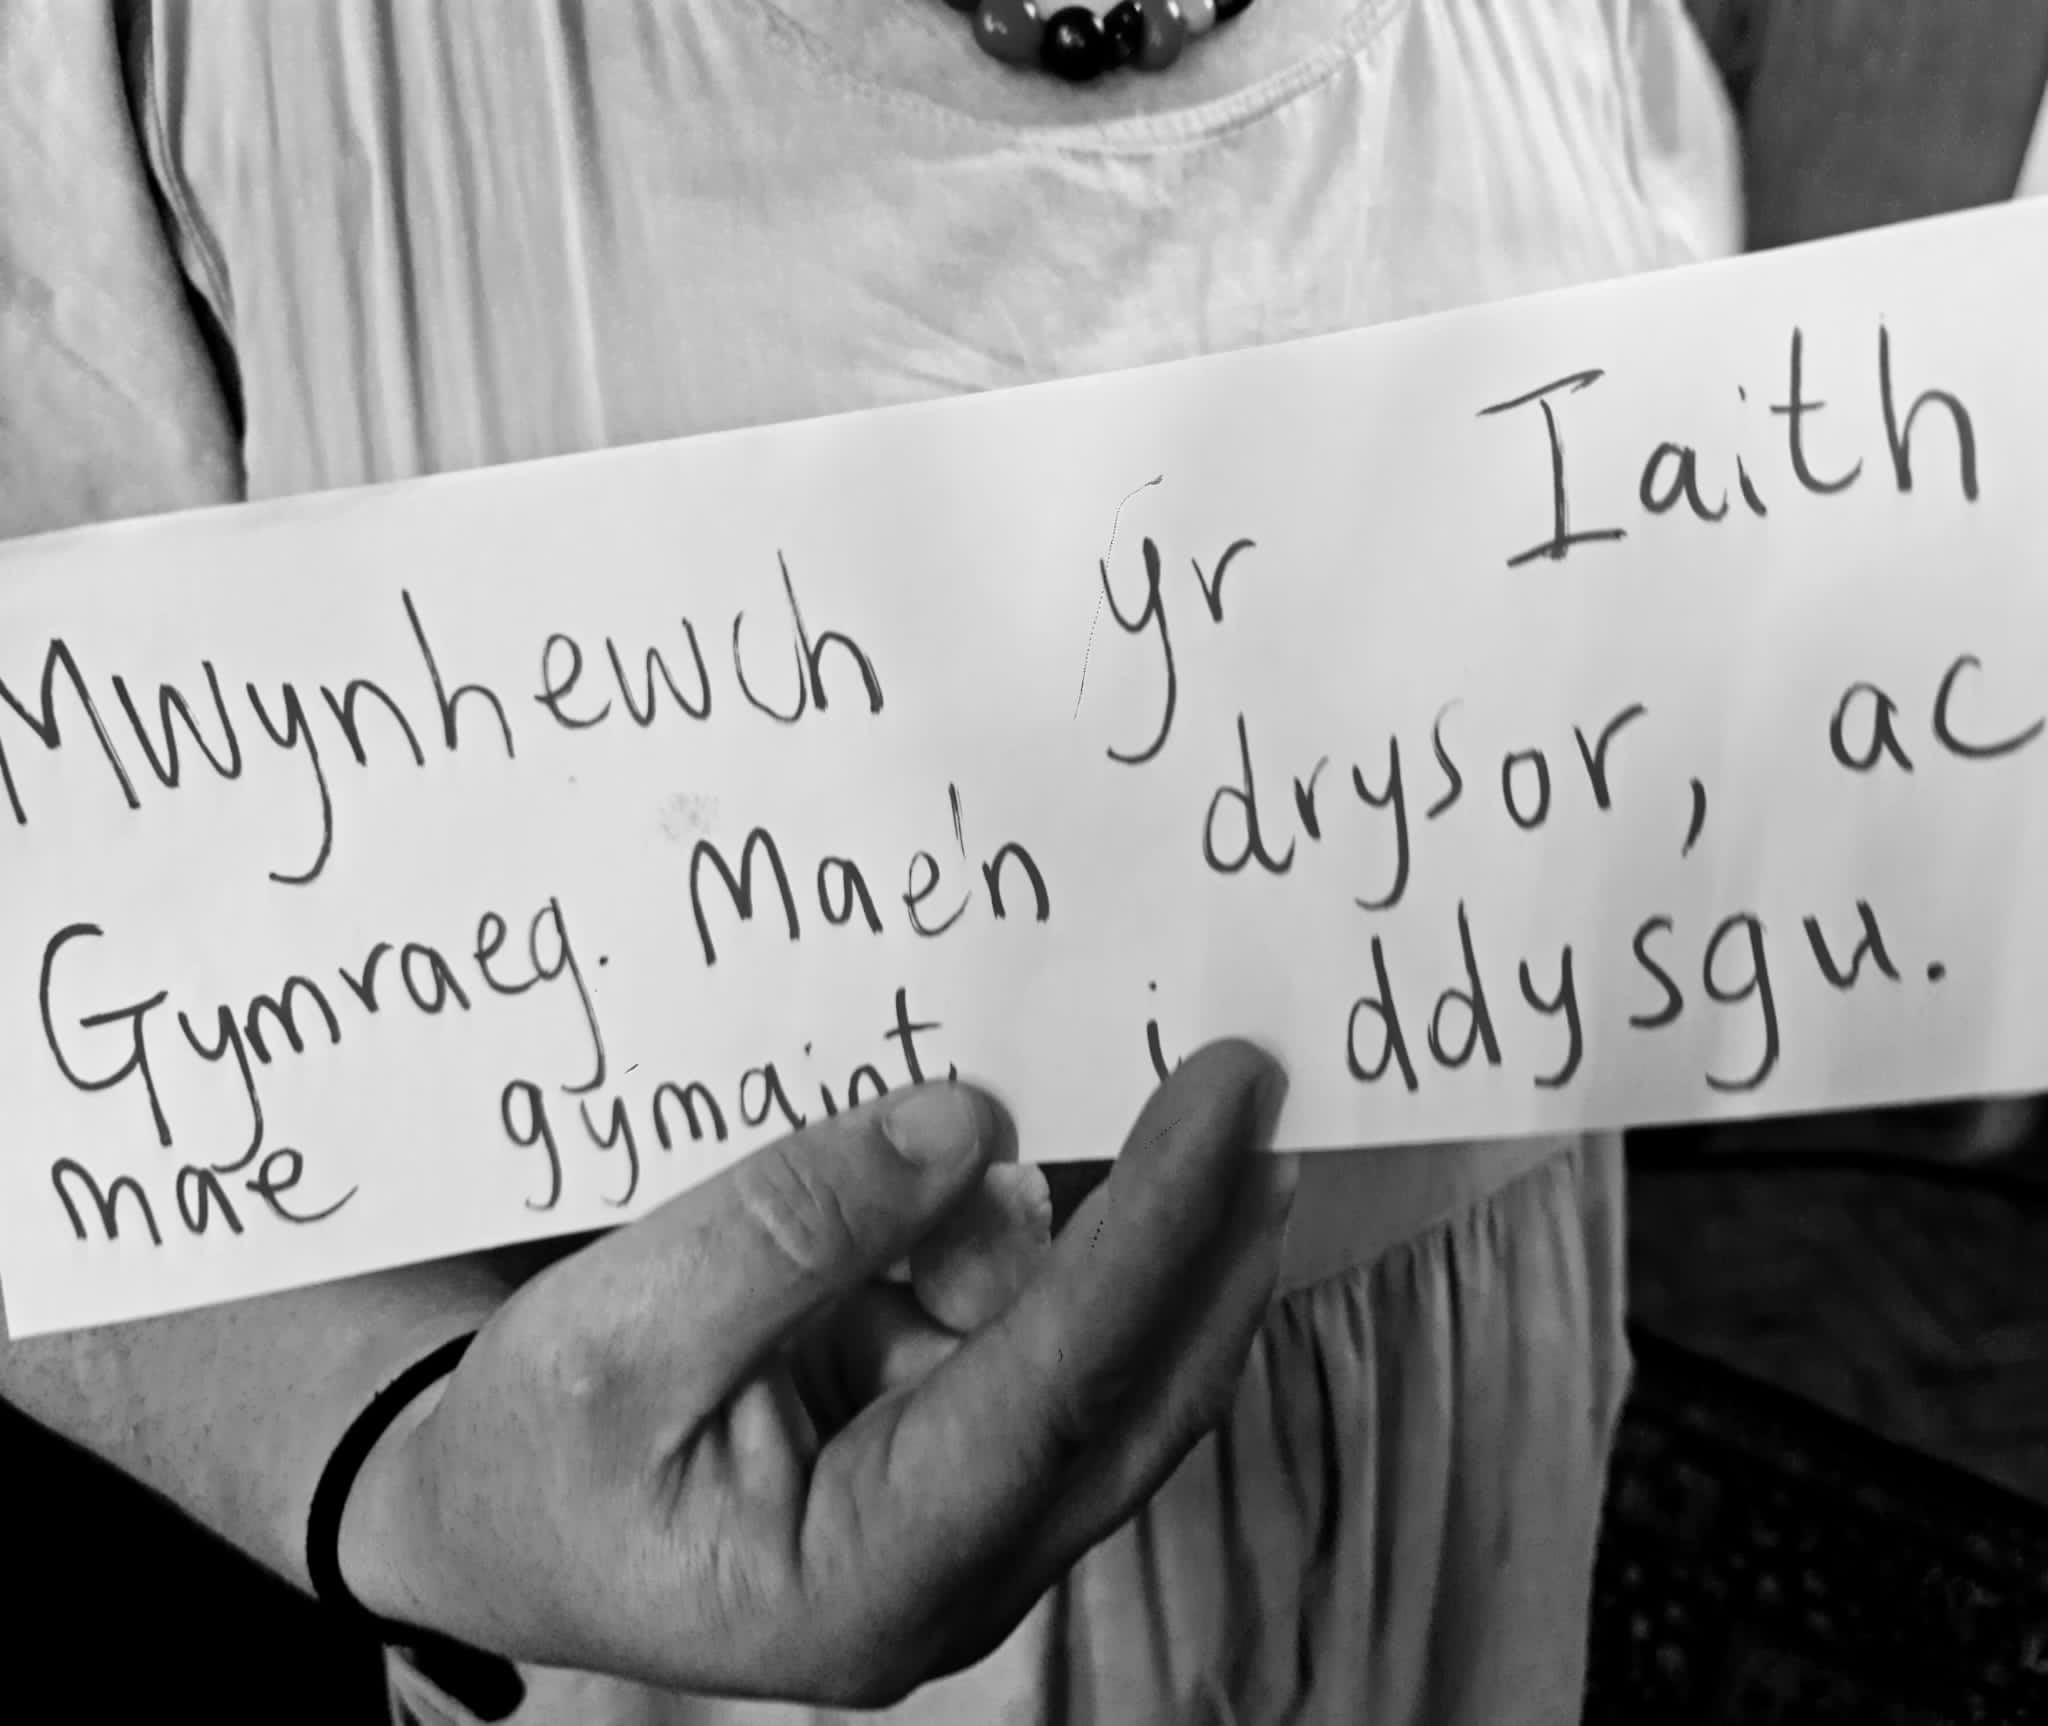 Mwynhewch yr Iaith
Gymraeg. Mae'n drysor, ac
mae gymaint i ddysgu.